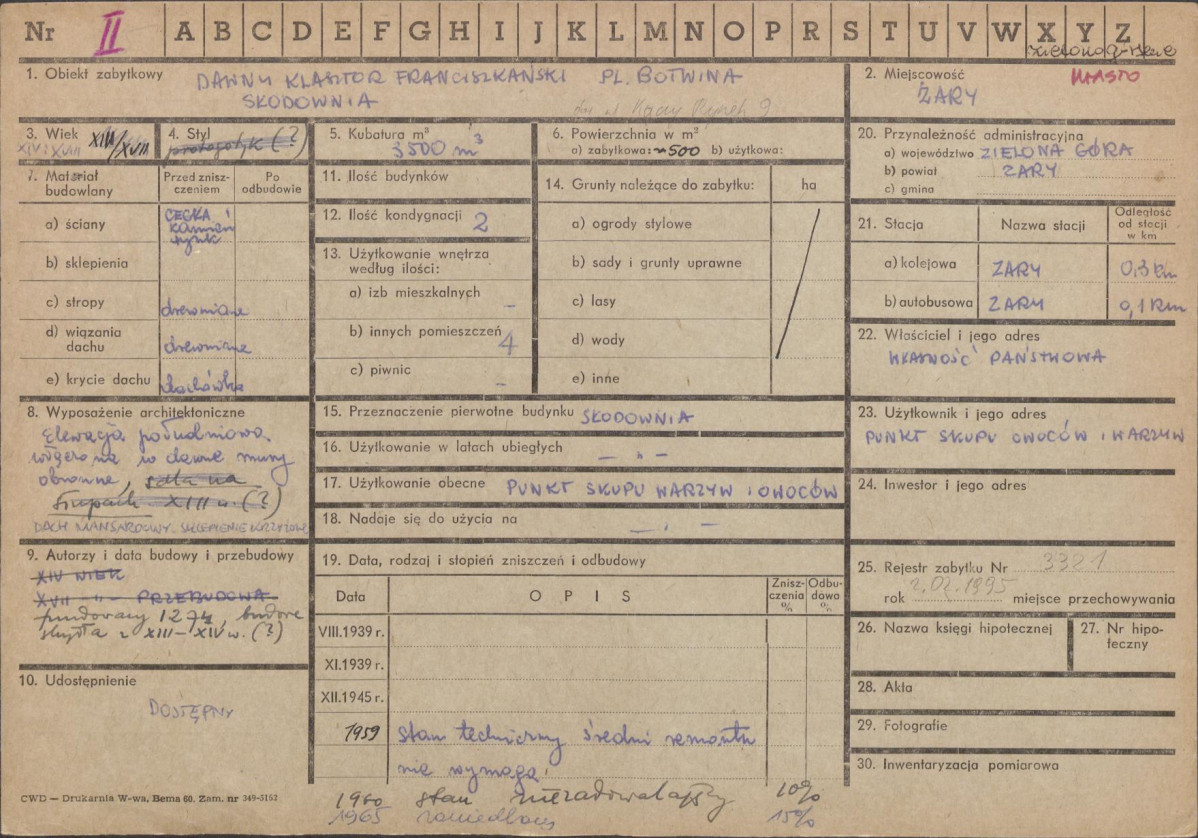 Nr II A B C D E F G H I J K L M N O P R S T U V W X Y Z
1. Obiekt zabytkowy DAWNY KLASZTOR FRANCISZKAŃSKI PL. BOTWINA
SŁODOWNIA
2. Miejscowość MIASTO
ŻARY
3. Wiek XIII/XVII
XIV: XVIII
4. Styl
protogotyk (?)
5. Kubatura m³
3500 m³
6. Powierzchnia w m²
a) zabytkowa: ~500 b) użytkowa:
7. Materiał budowlany
Przed zniszczeniem
Po odbudowie
a) ściany CEGŁA i kamień tynk
b) sklepienia
c) stropy drewniane
d) wiązania dachu drewniane
e) krycie dachu dachówka
8. Wyposażenie architektoniczne
Elewacja południowa
wiązana w dawne mury
obronne,
XIII w. (?)
DACH MANSARDOWY. SKLEPIENIE KRZYŻOWE
9. Autorzy i data budowy i przebudowy
XIV WIEK
XVII -"- PRZEBUDOWA
fundowany 1274, budowe
z XIII-XIV w. (?)
10. Udostępnienie
DOSTĘPNY
11. Ilość budynków
12. Ilość kondygnacji 2
13. Użytkowanie wnętrza
według ilości:
a) izb mieszkalnych -
b) innych pomieszczeń 4
c) piwnic -
14. Grunty należące do zabytku: ha
a) ogrody stylowe
b) sady i grunty uprawne
c) lasy
d) wody
e) inne
15. Przeznaczenie pierwotne budynku SŁODOWNIA
16. Użytkowanie w latach ubiegłych - " -
17. Użytkowanie obecne PUNKT SKUPU WARZYW i OWOCÓW
18. Nadaje się do użycia na - " -
19. Data, rodzaj i stopień zniszczeń i odbudowy
Data OPIS Zniszczenia % Odbudowa %
VIII.1939 r.
XI.1939 r.
XII.1945 r.
1959 stan techniczny średni remontu
nie wymaga.
1960 stan niezadowalający 10%
1965 15%
20. Przynależność administracyjna
a) województwo ZIELONA GÓRA
b) powiat ŻARY
c) gmina
21. Stacja Nazwa stacji Odległość od stacji w km
a) kolejowa ŻARY 0,3 km
b) autobusowa ŻARY 0,1 km
22. Właściciel i jego adres
WŁASNOŚĆ PAŃSTWOWA
23. Użytkownik i jego adres
PUNKT SKUPU OWOCÓW i WARZYW
24. Inwestor i jego adres
25. Rejestr zabytku Nr 3321
rok 2.02.1995 miejsce przechowywania
26. Nazwa księgi hipotecznej
27. Nr hipoteczny
28. Akta
29. Fotografie
30. Inwentaryzacja pomiarowa
CWD — Drukarnia W-wa, Bema 60. Zam. nr 349-5162